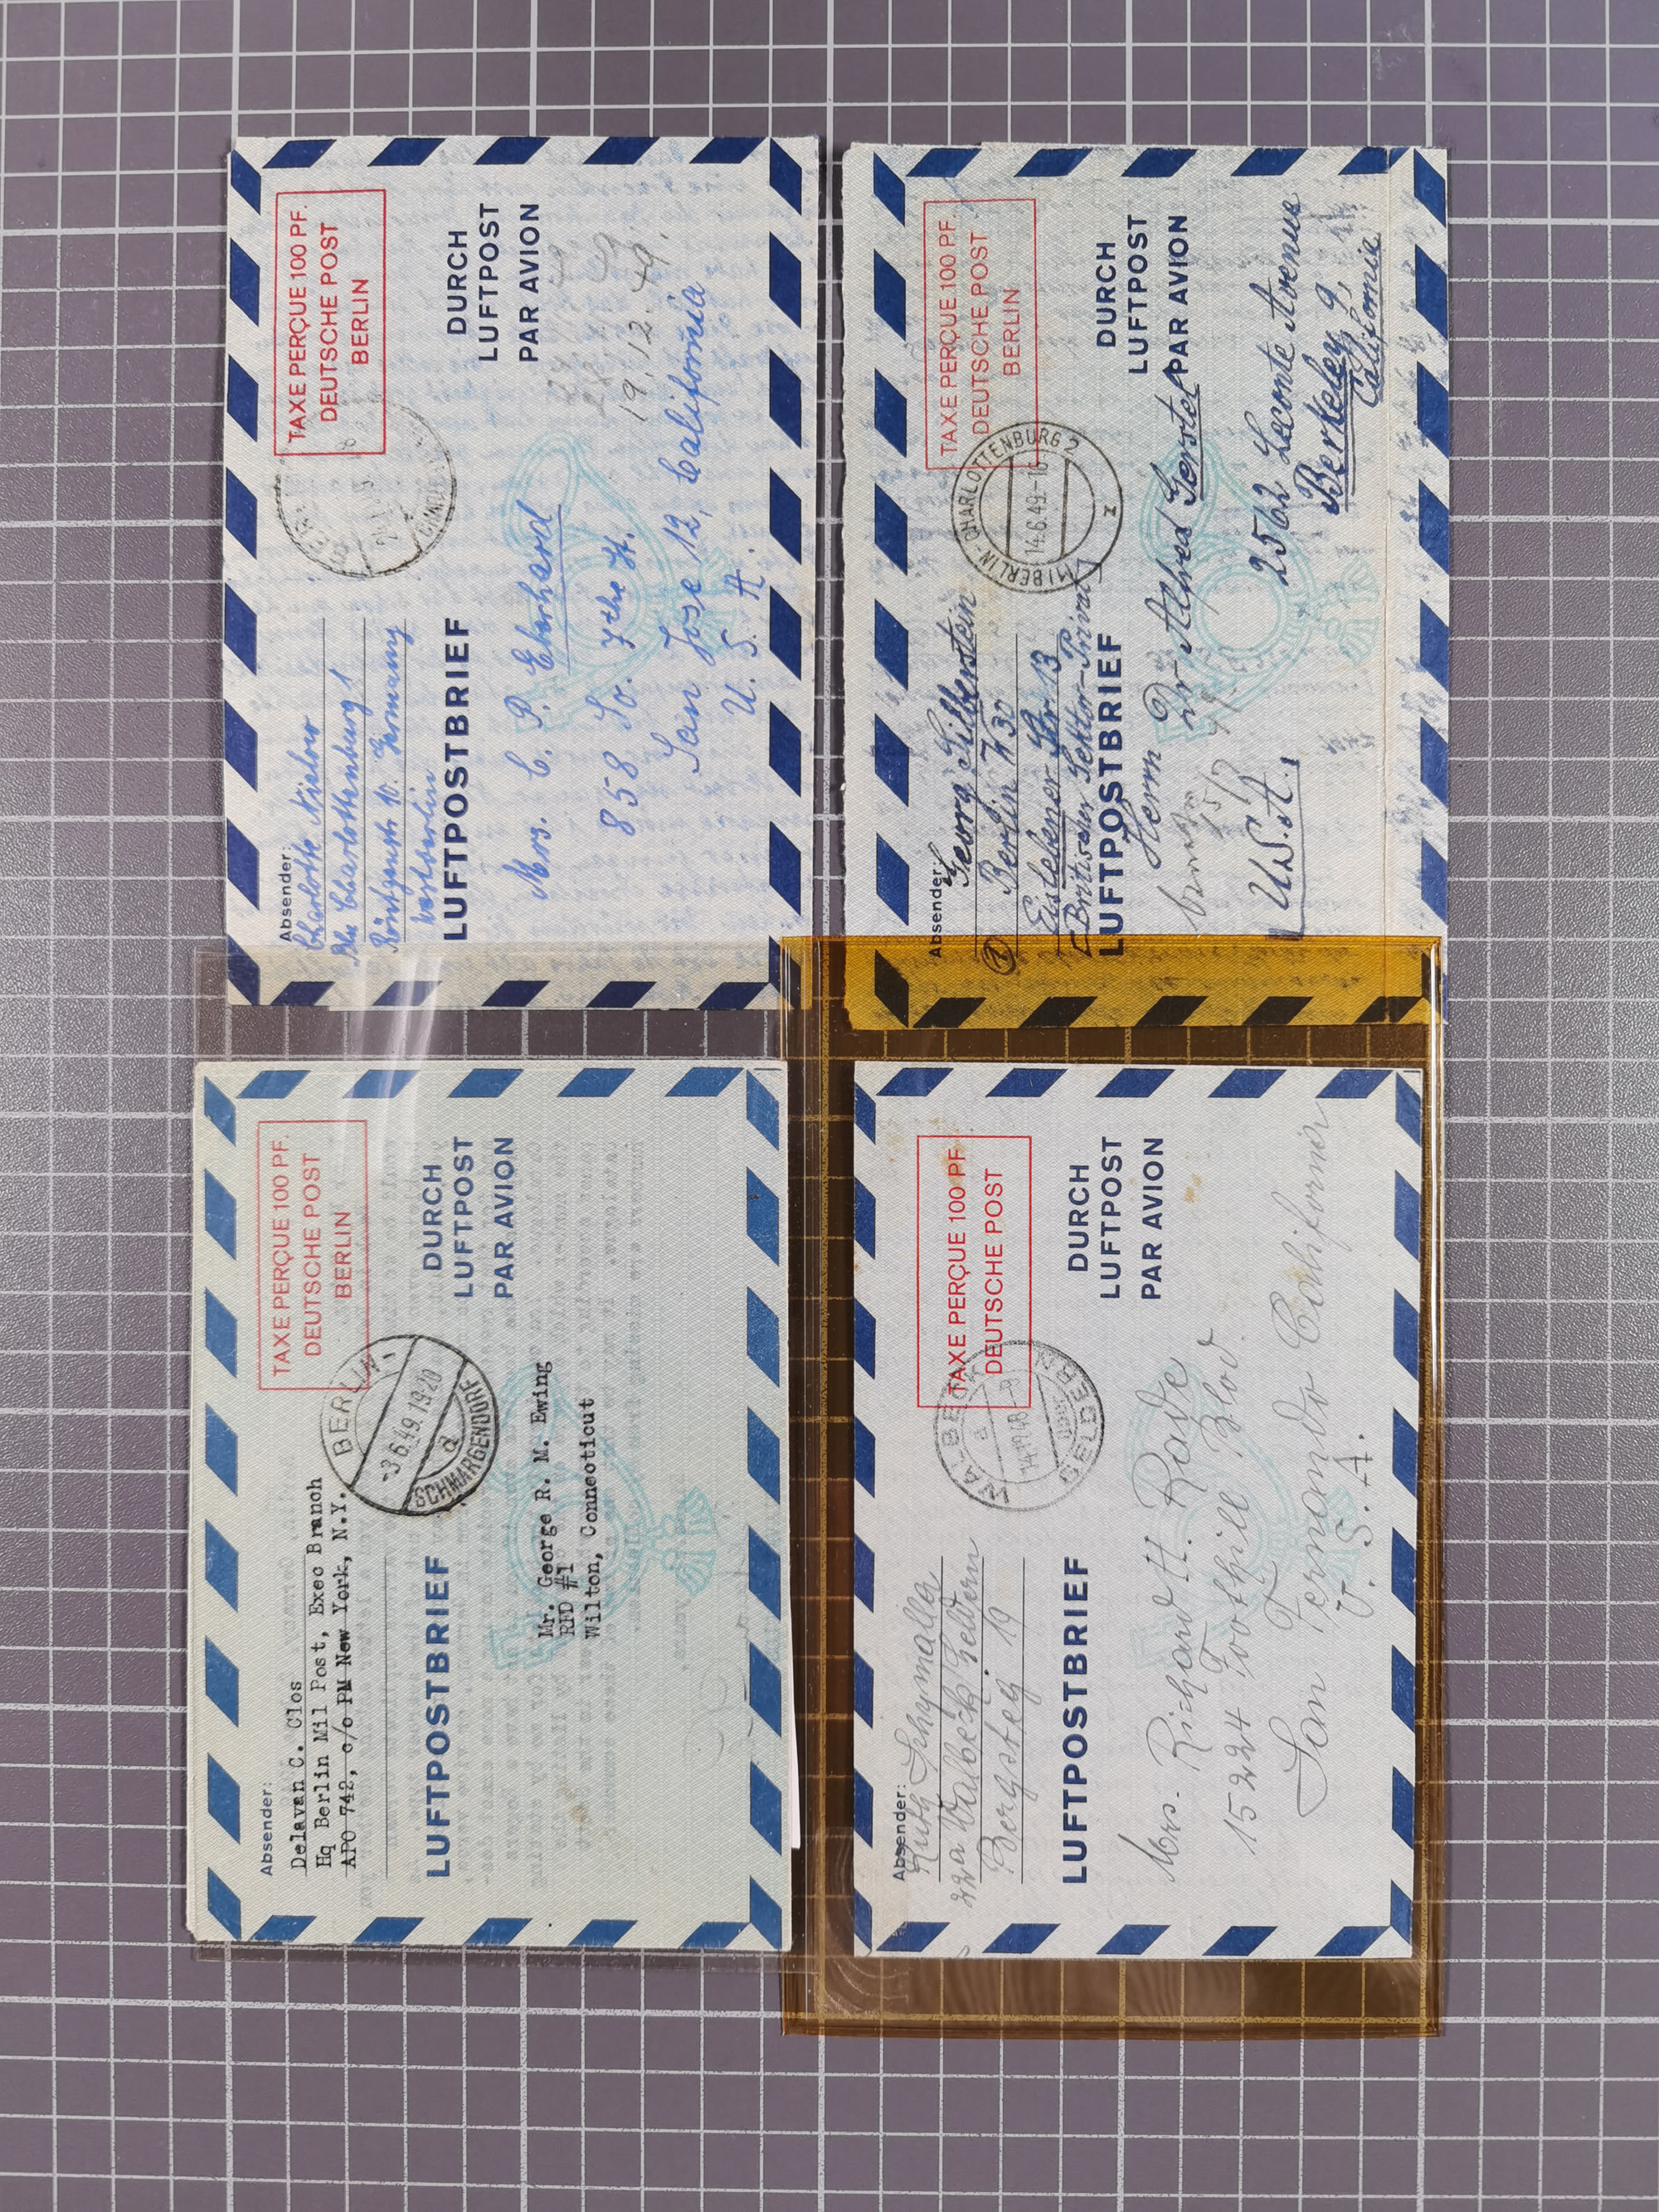 Absender:
Charlotte Nielow
Bln Charlottenburg 1
Röntgenstr 10. Germany
Westberlin
TAXE PERÇUE 100 PF.
DEUTSCHE POST
BERLIN
LUFTPOSTBRIEF
DURCH
LUFTPOST
PAR AVION
19.12.49.
Mrs. C. P. Eberhard
858 So. 7the St.
San Jose 12, California
U. S. A.
Absender:
Georg Silberstein
Berlin W 30
Eislebener Str. 13
(Britischer Sektor-Privat)
TAXE PERÇUE 100 PF.
DEUTSCHE POST
BERLIN
(1) BERLIN-CHARLOTTENBURG 2
14.6.49.-16
z
LUFTPOSTBRIEF
DURCH
LUFTPOST
PAR AVION
Herrn Dr Alfred Gerstel
2562 Leconte Avenue
Berkeley 9,
California
U.S.A.
Absender:
Delavan C. Clos
Hq Berlin Mil Post, Exec Branch
APO 742, c/o PM New York, N.Y.
TAXE PERÇUE 100 PF.
DEUTSCHE POST
BERLIN
BERLIN-
-3.6.49.19-20
d
SCHMARGENDORF
LUFTPOSTBRIEF
DURCH
LUFTPOST
PAR AVION
Mr. George R. M. Ewing
RFD #1
Wilton, Connecticut
Absender:
Ruth Schymalla
22a Walbeck/Geldern
Bergsteg 19
TAXE PERÇUE 100 PF.
DEUTSCHE POST
WALBECK
a
über
GELDERN
LUFTPOSTBRIEF
DURCH
LUFTPOST
PAR AVION
Mrs. Richard H. Rade
15224 Foothill Blvd.
San Fernando California
U. S. A.